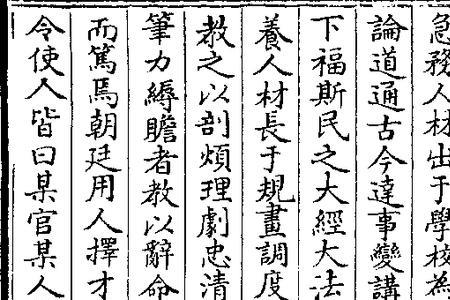 急務人材出于學校為
論道通古今達事變講
下福斯民之大經大法
養人材長于規畫調度
教之以剖煩理劇忠清
筆力縟贍者教以辭命
而篤焉朝廷用人擇才
令使人皆曰某官某人